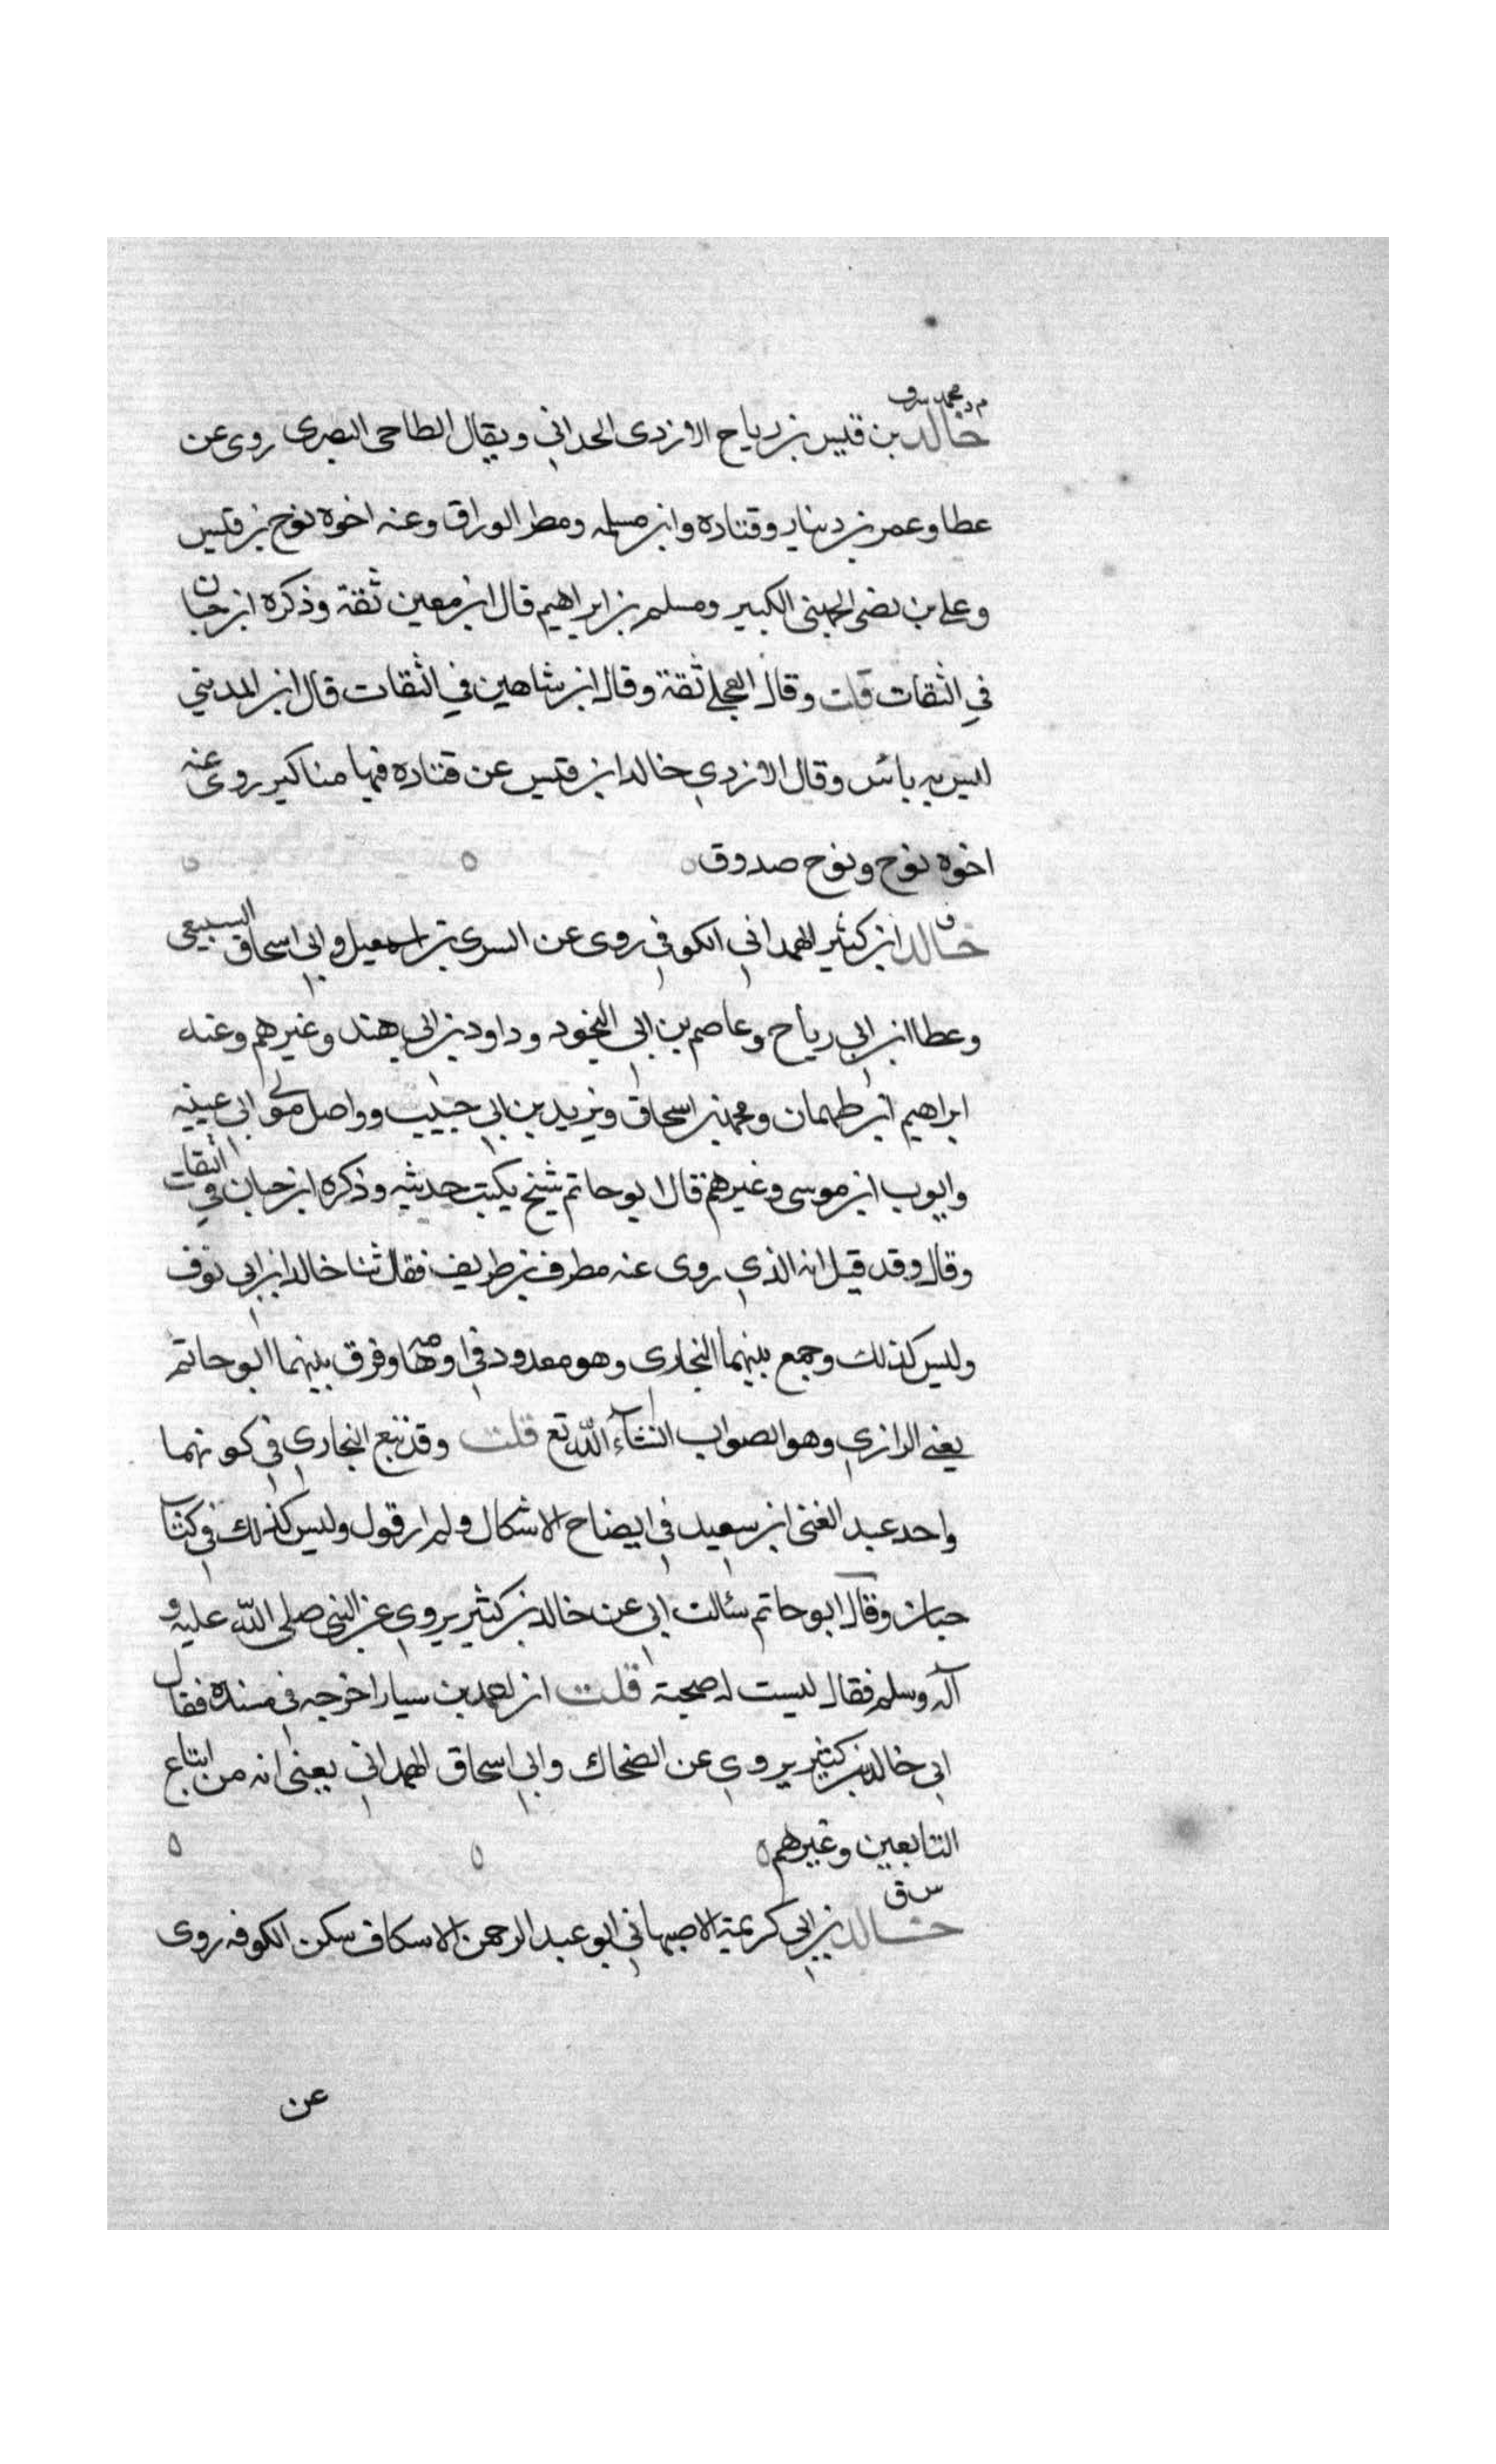 م د س ق
خالد بن قيس بن رياح الازدى الحداني ويقال الطاحى البصرى روى عن
عطا وعمر بن دينار وقتاده وابن مسلمه ومطر الوراق وعنه اخوه نوح بن قيس
وعلى بن نضى الجهنى الكبير ومسلم بن ابراهيم قال ابن معين ثقة وذكره ابن حبان
في الثقات قلت وقال العجلي ثقة وقال ابن شاهين في الثقات قال ابن المديني
ليس به بائس وقال الازدي خالد ابن قيس عن قتاده فيها مناكير روى عنه
اخوه نوح ونوح صدوق
ق
خالد ابن كثير الهمداني الكوفي روى عن السرى بن اسمعيل وابى اسحاق السبيعى
وعطا ابن ابي رياح وعاصم بن ابى النجود وداود بن ابي هند وغيرهم وعنه
ابراهيم ابن طهمان ومحمد بن اسحاق ويزيد بن ابي حبيب وواصل مولى ابى عيينه
وايوب ابن موسى وغيرهم قال ابو حاتم شيخ يكتب حديثه وذكره ابن حبان في الثقات
وقال وقد قيل انه الذي روى عنه مطرف بن طريف فقال ثنا خالد ابن ابي نوف
وليس كذلك وجمع بينهما البخارى وهو معدود في اوهامه وفرق بينهما ابو حاتم
يعني الرازي وهو الصواب انشآء الله تع قلت وقد تبع البخاري في كونهما
واحد عبد الغنى ابن سعيد في ايضاح الاشكال ولم ار قول وليس كذلك في كتاب
حبان وقال ابو حاتم سئالت ابى عن خالد بن كثير يروي عن النبى صلى الله عليه و
آله وسلم فقال ليست له صحبة قلت ان احمد بن سيار اخرجه في مسنده فقال
ابى خالد بن كثير يروي عن الضحاك وابي اسحاق الهمداني يعنى انه من اتباع
التابعين وغيرهم
س ق
خالد بن ابي كريمة الاصبهاني ابو عبد الرحمن الاسكاف سكن الكوفه روى
عن